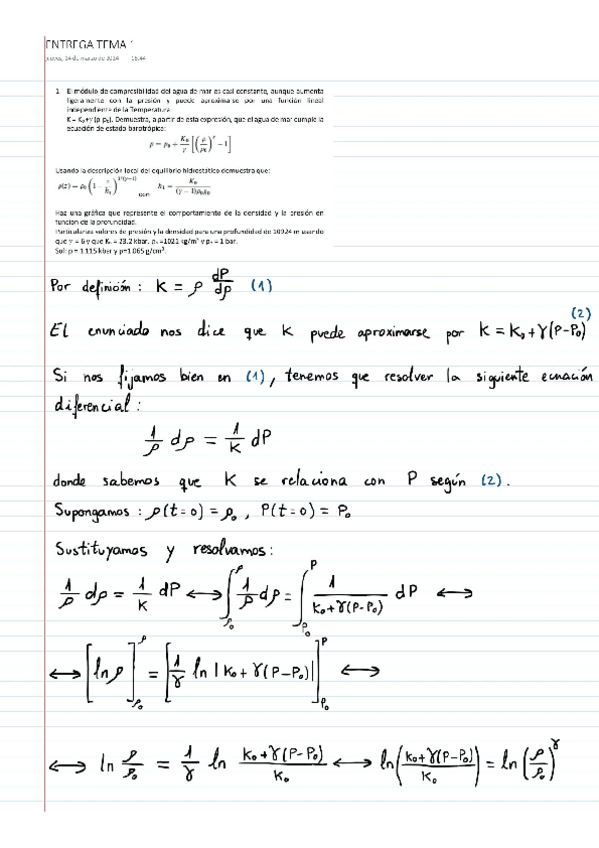 ENTREGA TEMA 1
jueves, 14 de marzo de 2024 15:44
1. El módulo de compresibilidad del agua de mar es casi constante, aunque aumenta
ligeramente con la presión y puede aproximarse por una función lineal
independiente de la Temperatura.
K = K₀+γ(p-p₀). Demuestra, a partir de esta expresión, que el agua de mar cumple la
ecuación de estado barotrópica:
p = p₀ + K₀/γ [(ρ/ρ₀)^γ − 1]
Usando la descripción local del equilibrio hidrostático demuestra que:
ρ(z) = ρ₀ (1 − z/h₁)^(1/(γ−1)) con h₁ = K₀/((γ−1)ρ₀g₀)
Haz una gráfica que represente el comportamiento de la densidad y la presión en
función de la profundidad.
Particulariza valores de presión y la densidad para una profundidad de 10924 m usando
que γ = 6 y que K₀ = 23.2 kbar, ρ₀ =1021 kg/m³ y p₀ = 1 bar.
Sol: p = 1.115 kbar y ρ=1.065 g/cm³.
Por definición : K = ρ dP/dρ (1)
El enunciado nos dice que K puede aproximarse por K = K₀ + γ(P-P₀) (2)
Si nos fijamos bien en (1), tenemos que resolver la siguiente ecuación
diferencial :
1/ρ dρ = 1/K dP
donde sabemos que K se relaciona con P según (2).
Supongamos : ρ(t=0) = ρ₀ , P(t=0) = P₀
Sustituyamos y resolvamos :
1/ρ dρ = 1/K dP ⟷ ∫_ρ₀^ρ 1/ρ dρ = ∫_P₀^P 1/(K₀+γ(P-P₀)) dP ⟷
⟷ [ln ρ]_ρ₀^ρ = [1/γ ln |K₀ + γ(P-P₀)|]_P₀^P ⟷
⟷ ln ρ/ρ₀ = 1/γ ln (K₀+γ(P-P₀))/K₀ ⟷ ln((K₀+γ(P-P₀))/K₀) = ln(ρ/ρ₀)^γ